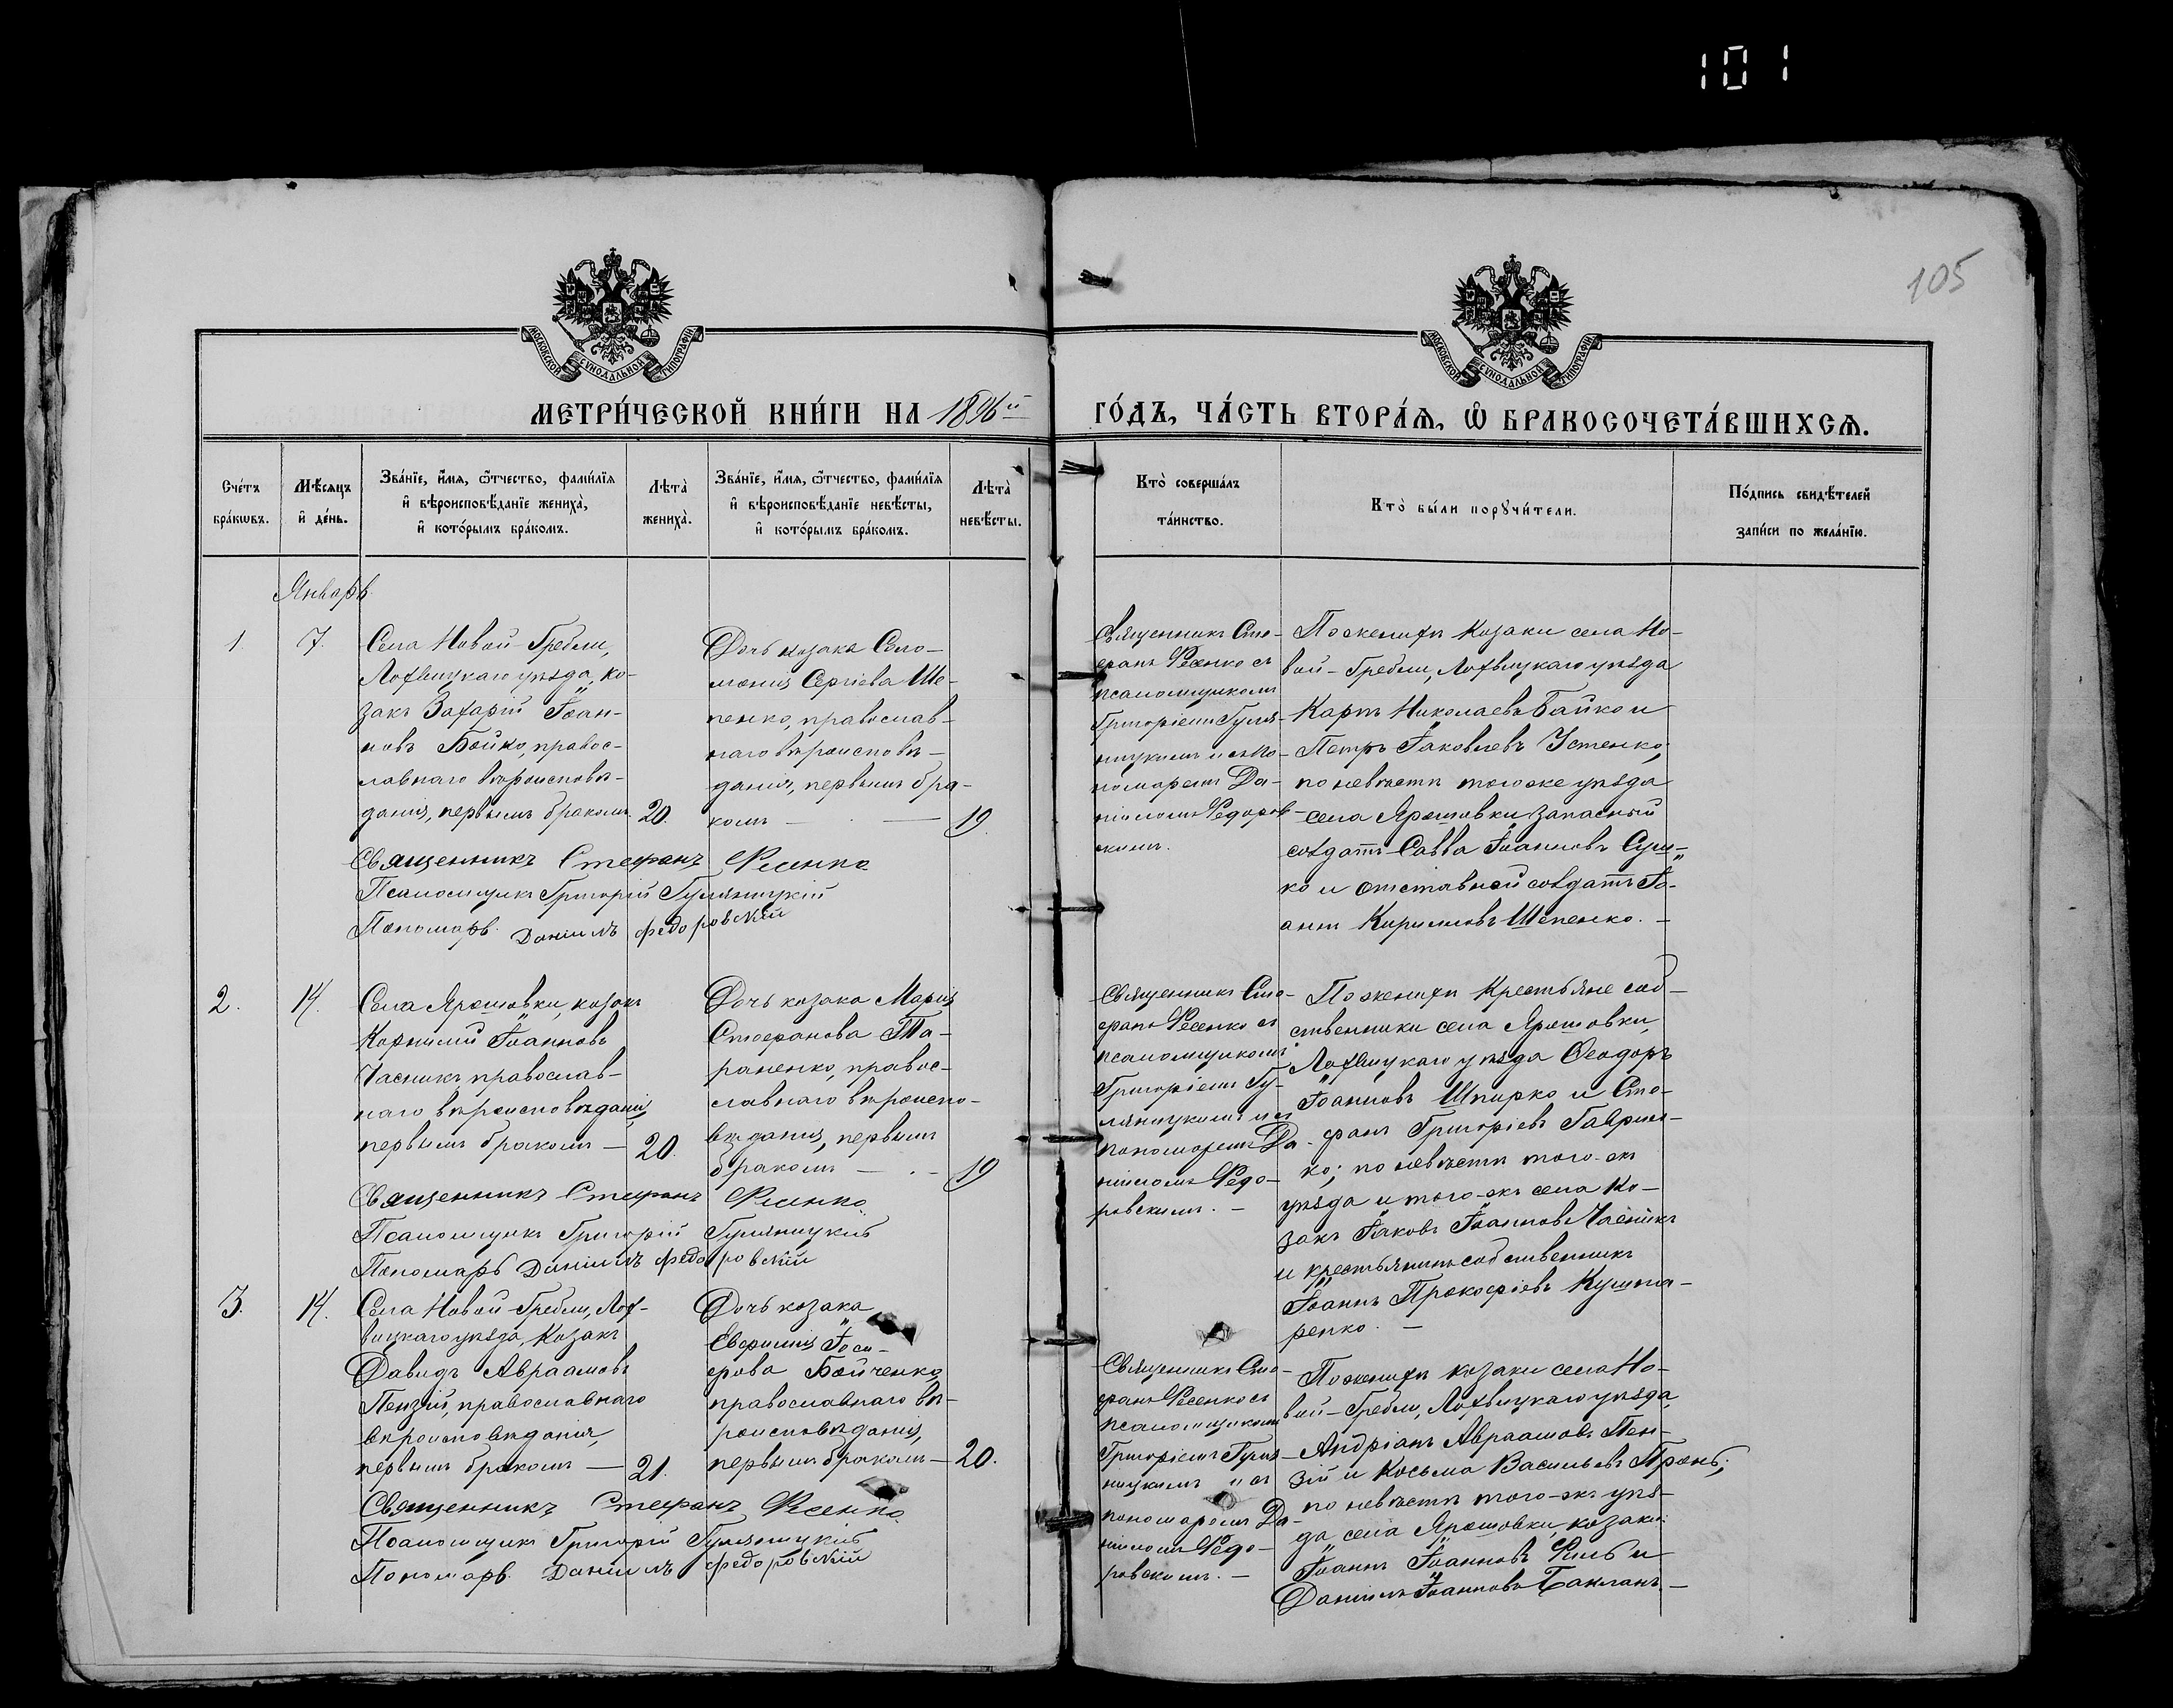 101
105
МОСКОВСКОЙ СѴНОДАЛЬНОЙ ТИПОГРАФІИ
МОСКОВСКОЙ СѴНОДАЛЬНОЙ ТИПОГРАФІИ
МЕТРИ́ЧЕСКОЙ КНИ́ГИ НА 1896й
ГО́ДЪ, ЧА́СТЬ ВТОРА́Ѧ, Ѽ БРАКОСОЧЕТА́ВШИХСѦ.
Сче́тъ бра́кѡвъ.
Мѣ́сяцъ и҆ де́нь.
Зва́нїе, и҆́мя, ѻ҆́тчество, фами́лїя
и҆ вѣроисповѣ́данїе жениха̀,
и҆ кото́рымъ бра́комъ.
Лѣта̀ жениха̀.
Зва́нїе, и҆́мя, ѻ҆́тчество, фами́лїя
и҆ вѣроисповѣ́данїе невѣ́сты,
и҆ кото́рымъ бра́комъ.
Лѣта̀ невѣ́сты.
Кто̀ соверша́лъ
та́инство.
Кто̀ бы́ли порꙋчи́тели.
По́дпись свидѣ́телей
за́писи по жела́нїю.
Январь
1.
7.
Села Новой-Гребли,
Лохвицкаго уѣзда, ко-
закъ Захарій Іоан-
новъ Бойко, правос-
лавнаго вѣроисповѣ-
данія, первымъ бракомъ.
20.
Дочь козака Соло-
монія Сергіева Ше-
пенко, православ-
наго вѣроисповѣ-
данія, первымъ бра-
комъ —
19.
Священникъ Сте-
фанъ Фесенко съ
псаломщикомъ
Григоріемъ Гуля-
ницкимъ и съ по-
номаремъ Да-
ніиломъ Федоров-
скимъ.
По женихѣ козаки села Но-
вой-Гребли, Лохвицкаго уѣзда
Карпъ Николаевъ Байко и
Петръ Іаковлевъ Устенко;
по невѣстѣ того же уѣзда
села Ярошовки запасный
солдатъ Савва Іоанновъ Суш-
ко и отставной солдатъ Іо-
аннъ Кирилловъ Шепенко. —
Священникъ Стефанъ Фесенко
Псаломщикъ Григорій Гуляницкій
Пономарь Даніилъ Федоровскій
2.
14.
Села Ярошовки, козакъ
Корнилій Іоанновъ
Часникъ православ-
наго вѣроисповѣданія,
первымъ бракомъ —
20.
Дочь козака Марія
Стефанова Та-
раненко, правос-
лавнаго вѣроиспо-
вѣданія, первымъ
бракомъ —
19
Священникъ Сте-
фанъ Фесенко съ
псаломщикомъ
Григоріемъ Гу-
ляницкимъ и съ
пономаремъ Да-
ніиломъ Федо-
ровскимъ. —
По женихѣ крестьяне соб-
ственники села Ярошовки,
Лохвицкаго уѣзда Ѳеодоръ
Іоанновъ Шпирко и Сте-
фанъ Григоріевъ Гаврил-
ко; по невѣстѣ того-же
уѣзда и того-же села ко-
закъ Іаковъ Іоанновъ Часникъ
и крестьянинъ собственникъ
Іоаннъ Прокофіевъ Кушна-
ренко. —
Священникъ Стефанъ Фесенко
Псаломщикъ Григорій Гуляницкій
Пономарь Даніилъ Федоровскій
3.
14.
Села Новой-Гребли, Лох-
вицкаго уѣзда, козакъ
Давидъ Авраамовъ
Пензій, православнаго
вѣроисповѣданія,
первымъ бракомъ —
21.
Дочь козака
Евфимія Іоси-
фова Бойченко
православнаго вѣ-
роисповѣданія,
первымъ бракомъ —
20.
Священникъ Сте-
фанъ Фесенко съ
псаломщикомъ
Григоріемъ Гуля-
ницкимъ и съ
пономаремъ Да-
ніиломъ Федо-
ровскимъ. —
По женихѣ козаки села Но-
вой-Гребли, Лохвицкаго уѣзда,
Андріанъ Авраамовъ Пен-
зій и Косьма Васильевъ
по невѣстѣ того-же уѣз-
да, села Ярошовки, козаки
Іоаннъ Іоанновъ и
Даніилъ Іоанновъ Бакланъ. —
Священникъ Стефанъ Фесенко
Псаломщикъ Григорій Гуляницкій
Пономарь Даніилъ Федоровскій